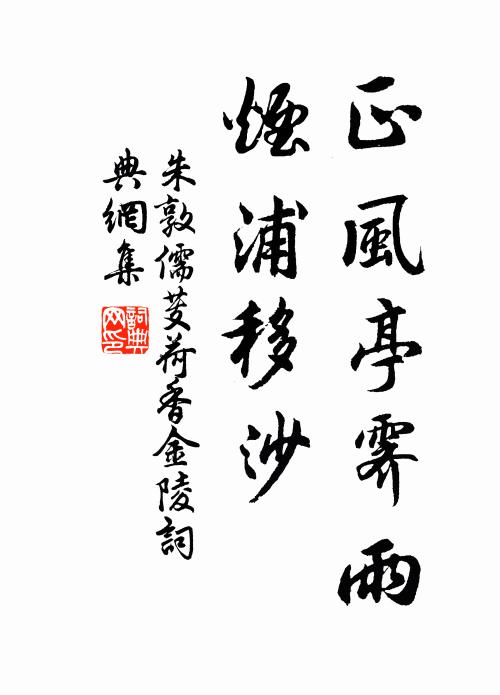 正風亭霽雨
煙浦移沙
朱敦儒芰荷香金陵詞
典網集
詞典
网印